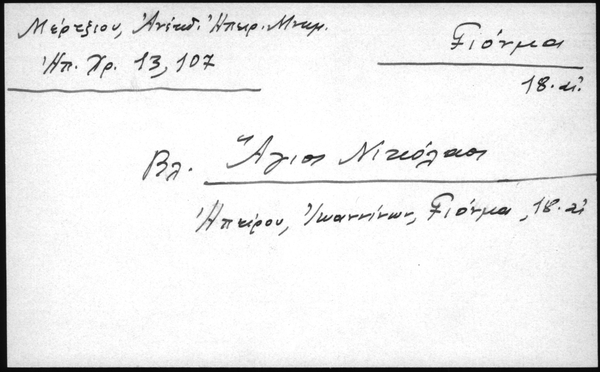 Μέρτζιου, Ἀνέκδ. Ἠπειρ. Μνημ.
Ἠπ. Χρ. 13, 107
Γιόνμα
18. αἰ.
Βλ. Ἅγιος Νικόλαος
Ἠπείρου, Ἰωαννίνων, Γιόνμα, 18. αἰ